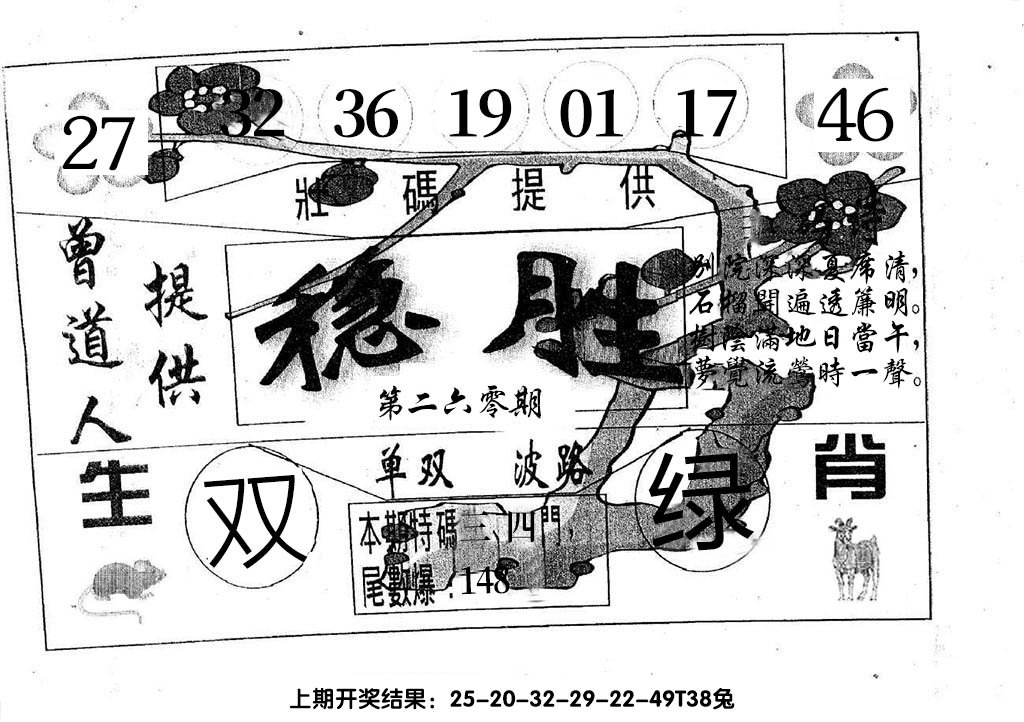 27 32 36 19 01 17 46
壯碼提供
曾道人
提供
稳胜
第二六零期
别院深深夏席清,
石榴開遍透簾明。
樹陰滿地日當午,
夢覺流鶯時一聲。
单双 波路
生肖
双
绿
本期特碼三、四門,
尾數爆:148
上期开奖结果:25-20-32-29-22-49T38兔